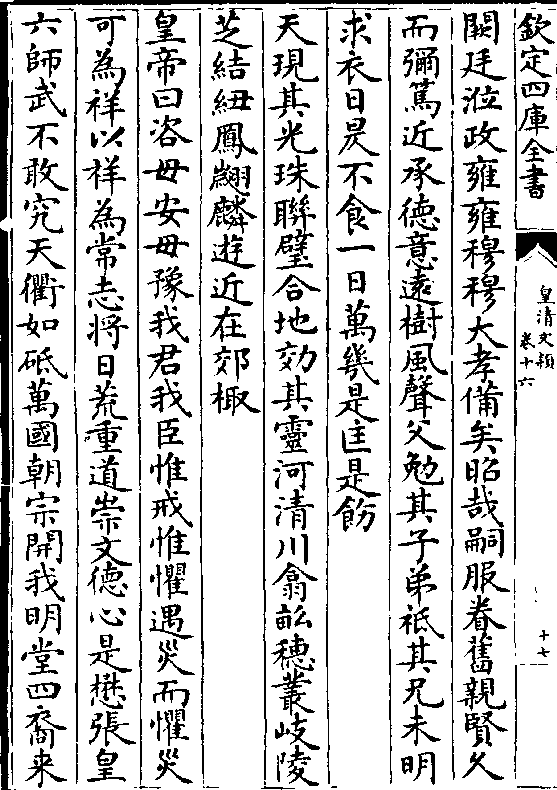 欽定四庫全書
皇清文穎
卷十六
十七
闕廷涖政雍雍穆穆大孝備矣昭哉嗣服眷舊親賢久
而彌篤近承德意遠樹風聲父勉其子弟祗其兄未明
求衣日昃不食一日萬幾是匡是飭
天現其光珠聯璧合地効其靈河清川翕畝穗叢岐陵
芝結紐鳳翽麟遊近在郊棷
皇帝曰咨毋安毋豫我君我臣惟戒惟懼遇災而懼災
可為祥以祥為常志將日荒重道崇文德心是懋張皇
六師武不敢究天衢如砥萬國朝宗開我明堂四裔来